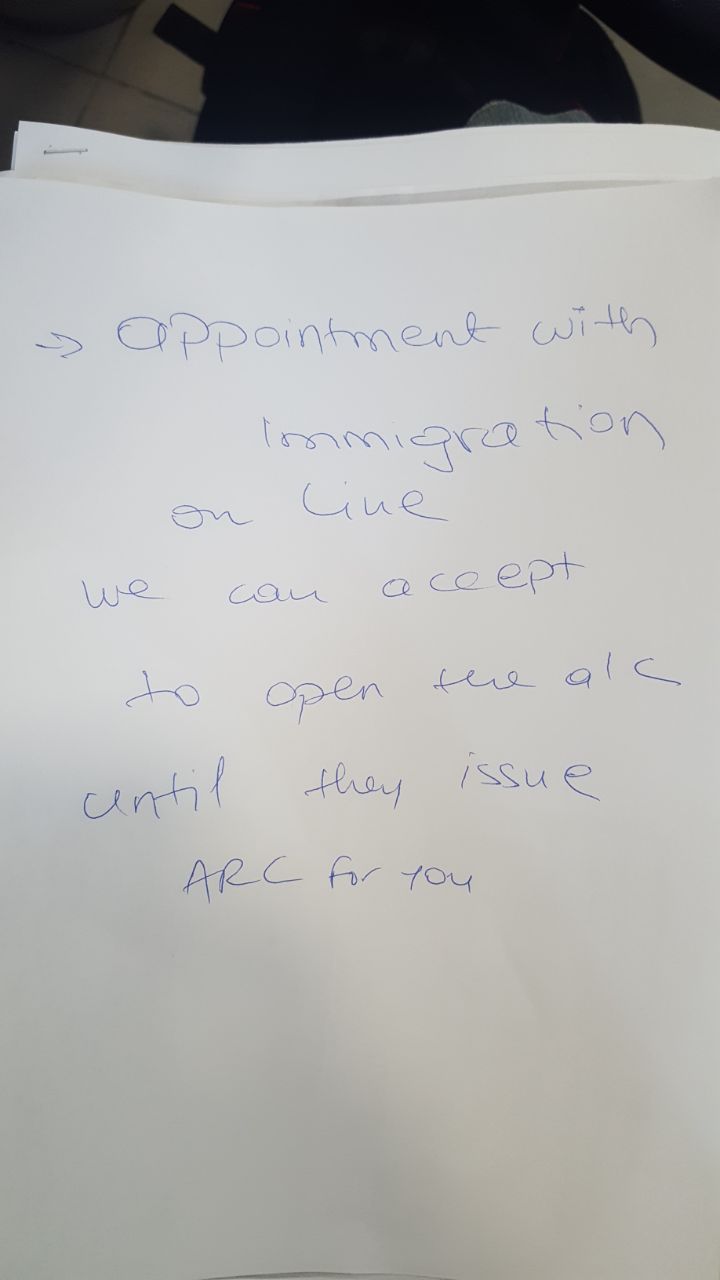 → appointment with
immigration
on line
we can accept
to open the a/c
until they issue
ARC for you